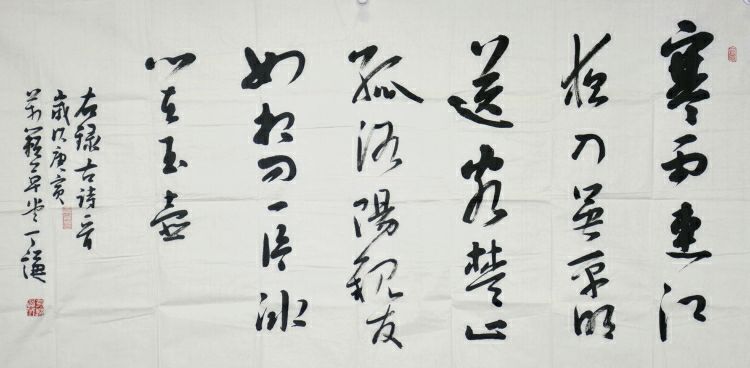 寒雨連江
夜入吳平明
送客楚山
孤洛陽親友
如相問一片冰
心在玉壺
右錄古詩一首
歲次庚寅
草堂丁謙